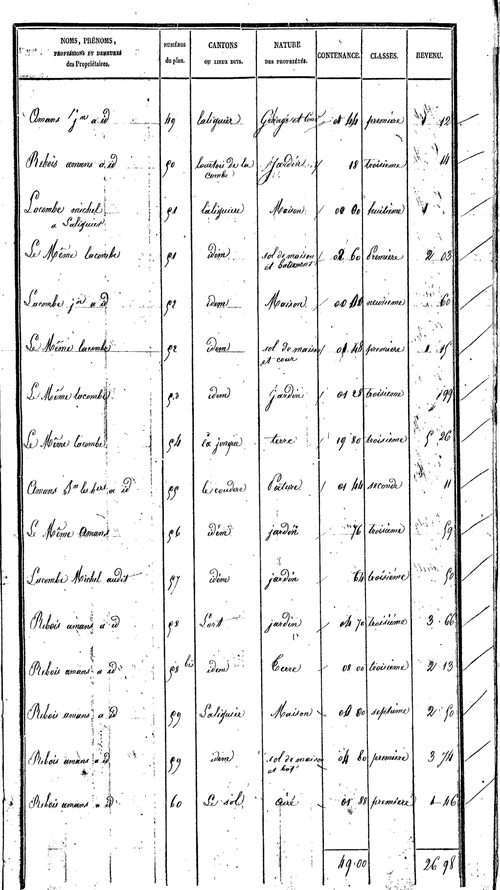 NOMS, PRÉNOMS, PROFESSIONS ET DEMEURES des Propriétaires. NUMÉROS du plan. CANTONS OU LIEUX DITS. NATURE DES PROPRIÉTÉS. CONTENANCE. CLASSES. REVENU.
Amans jn a id 49 Laliguier et 01 44 première 1 12
Rebois amans a id 50 de la combe jardin 18 troisieme 14
Lacombe michel a Laliguier 51 laliguiere Maison 00 00 huitième
Le Même lacombe 51 idem sol de maison et batiments 02 60 première 2 03
Lacombe jn a id 52 idem Maison 00 00 neuvieme 60
Le Même lacombe 52 idem sol de maison et cour 01 48 premiere 1 15
Le Même lacombe 53 idem jardin 01 28 troisieme 99
Le Même lacombe 54 terre 19 80 troisieme 5 26
Amans a id 55 le coudar Pature 01 44 seconde 11
Le Même Amans 56 idem jardin 76 troisieme 59
Lacombe Michel audit 57 idem jardin 64 troisième 50
Rebois amans a id 58 L'ort jardin 04 70 troisième 3 66
Rebois amans a id 58 bis idem Terre 08 00 troisieme 2 13
Rebois amans a id 59 Laliguier Maison 00 00 septieme 2 50
Rebois amans a id 59 idem sol de maison et bat 04 80 première 3 74
Rebois amans a id 60 Le sol airé 01 88 premiere 1 46
49.00 26 98